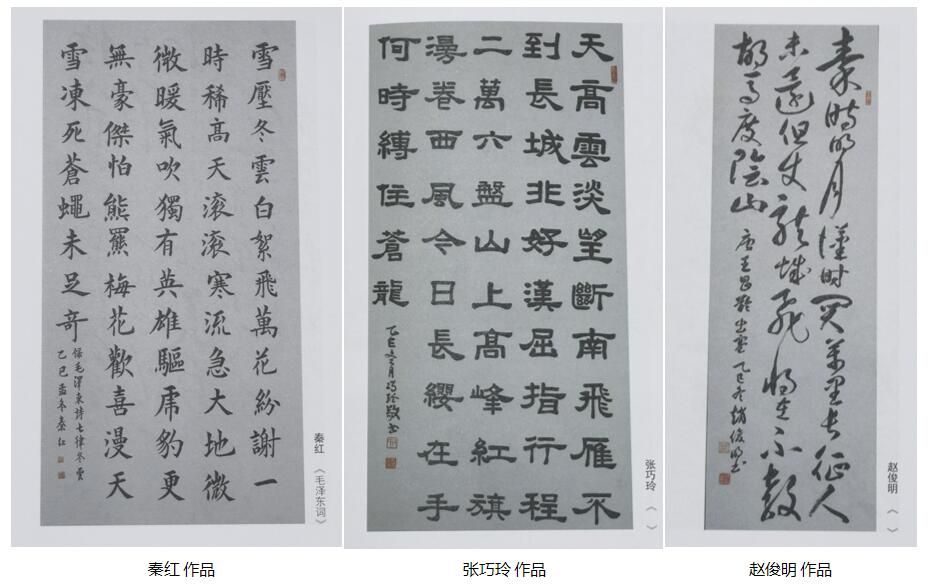 雪壓冬雲白絮飛萬花紛謝一
時稀高天滚滚寒流急大地微
微暖氣吹獨有英雄驅虎豹更
無豪傑怕熊羆梅花歡喜漫天
雪凍死蒼蠅未足奇
錄毛澤東詩七律冬雲
乙巳孟冬秦红
秦红 《毛泽东词》
天高雲淡望斷南飛雁不
到長城非好漢屈指行程
二萬六盤山上高峰紅旗
漫卷西風今日長纓在手
何時縛住蒼龍
乙巳冬月巧玲敬书
张巧玲 《 》
秦時明月漢时關萬里長征人
未還但使龍城飛将在不教
胡馬度陰山
唐王昌齡出塞乙巳冬趙俊明书
赵俊明 《 》
秦红 作品
张巧玲 作品
赵俊明 作品